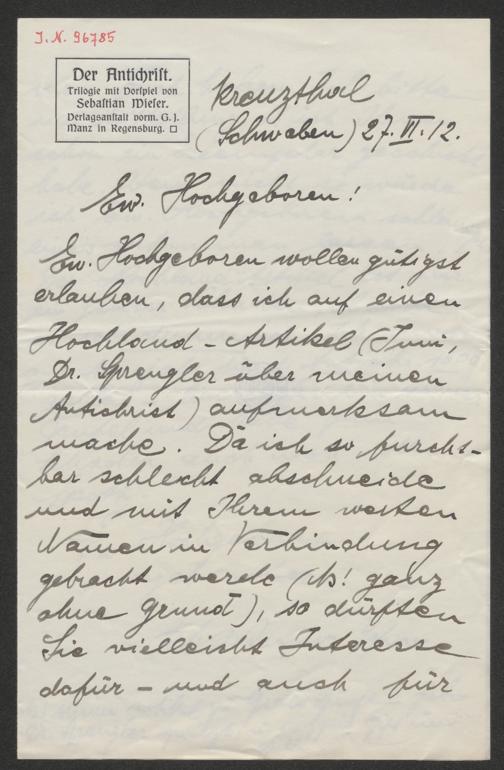 J. N. 96785
Der Antichrist.
Trilogie mit Vorspiel von
Sebastian Wieser.
Verlagsanstalt vorm. G. J.
Manz in Regensburg.
Kreuzthal
(Schwaben) 27. VI. 12.
Ew. Hochgeboren!
Ew. Hochgeboren wollen gütigst
erlauben, dass ich auf einen
Hochland-Artikel (Juni,
Dr. Sprengler über meinen
Antichrist) aufmerksam
mache. Da ich so furcht-
bar schlecht abschneide
und mit Ihrem werten
Namen in Verbindung
gebracht werde (NB! ganz
ohne Grund), so dürften
Sie vielleicht Interesse
dafür – und auch für